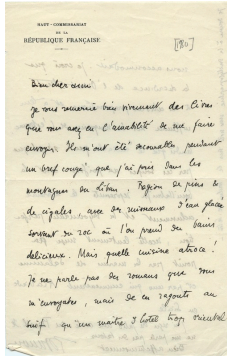 HAUT-COMMISSARIAT
DE LA
RÉPUBLIQUE FRANÇAISE
Bien cher ami
Je vous remercie bien vivement des livres
que vous avez eu l'amabilité de me faire
envoyer. Ils m'ont été pendant
un bref congé que j'ai pris dans les
montagnes du Liban. Région de pins &
de cigales, avec des ruisseaux d'eau glacée
sortant du roc où l'on prend des bains
délicieux. Mais quelle cuisine atroce !
Je ne parle pas des romans que vous
m'envoyâtes, mais de ces ragoûts au
suif qu'un maître d'hôtel trop oriental